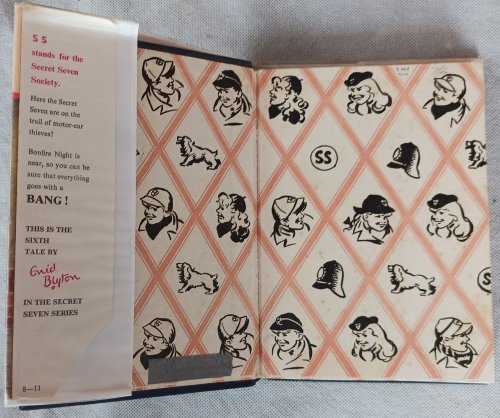 SS
stands for the
Secret Seven
Society.
Here the Secret
Seven are on the
trail of motor-car
thieves!
Bonfire Night is
near, so you can be
sure that everything
goes with a
BANG!
THIS IS THE
SIXTH
TALE BY
Enid
Blyton
IN THE SECRET
SEVEN SERIES
8—11
SS
SS